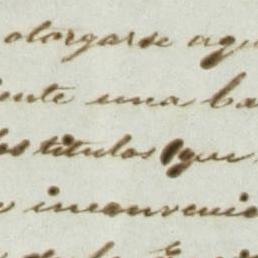 otorgarse aqu
ente una ba
los titulos que
inconvenie